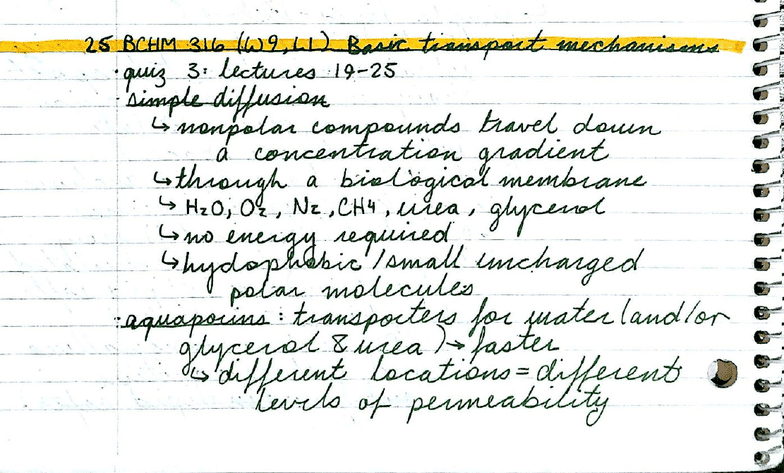 25 BCHM 316 (W9, L1) Basic transport mechanisms
· quiz 3: lectures 19-25
· simple diffusion
↳ nonpolar compounds travel down
a concentration gradient
↳ through a biological membrane
↳ H₂O, O₂, N₂, CH₄, urea, glycerol
↳ no energy required
↳ hydophobic / small uncharged
polar molecules
· aquaporins : transporters for water (and/or
glycerol & urea) → faster
↳ different locations = different
levels of permeability